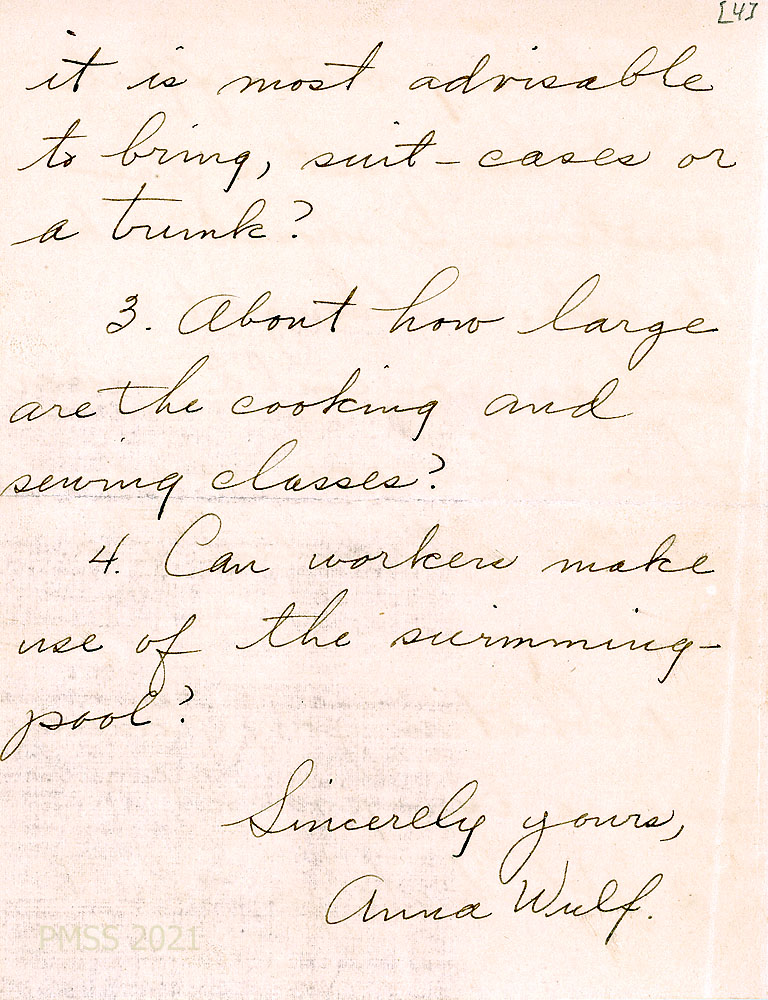 [4]
it is most advisable
to bring, suit-cases or
a trunk?
3. About how large
are the cooking and
sewing classes?
4. Can workers make
use of the swimming-
pool?
Sincerely yours,
Anna Wulf.
PMSS 2021